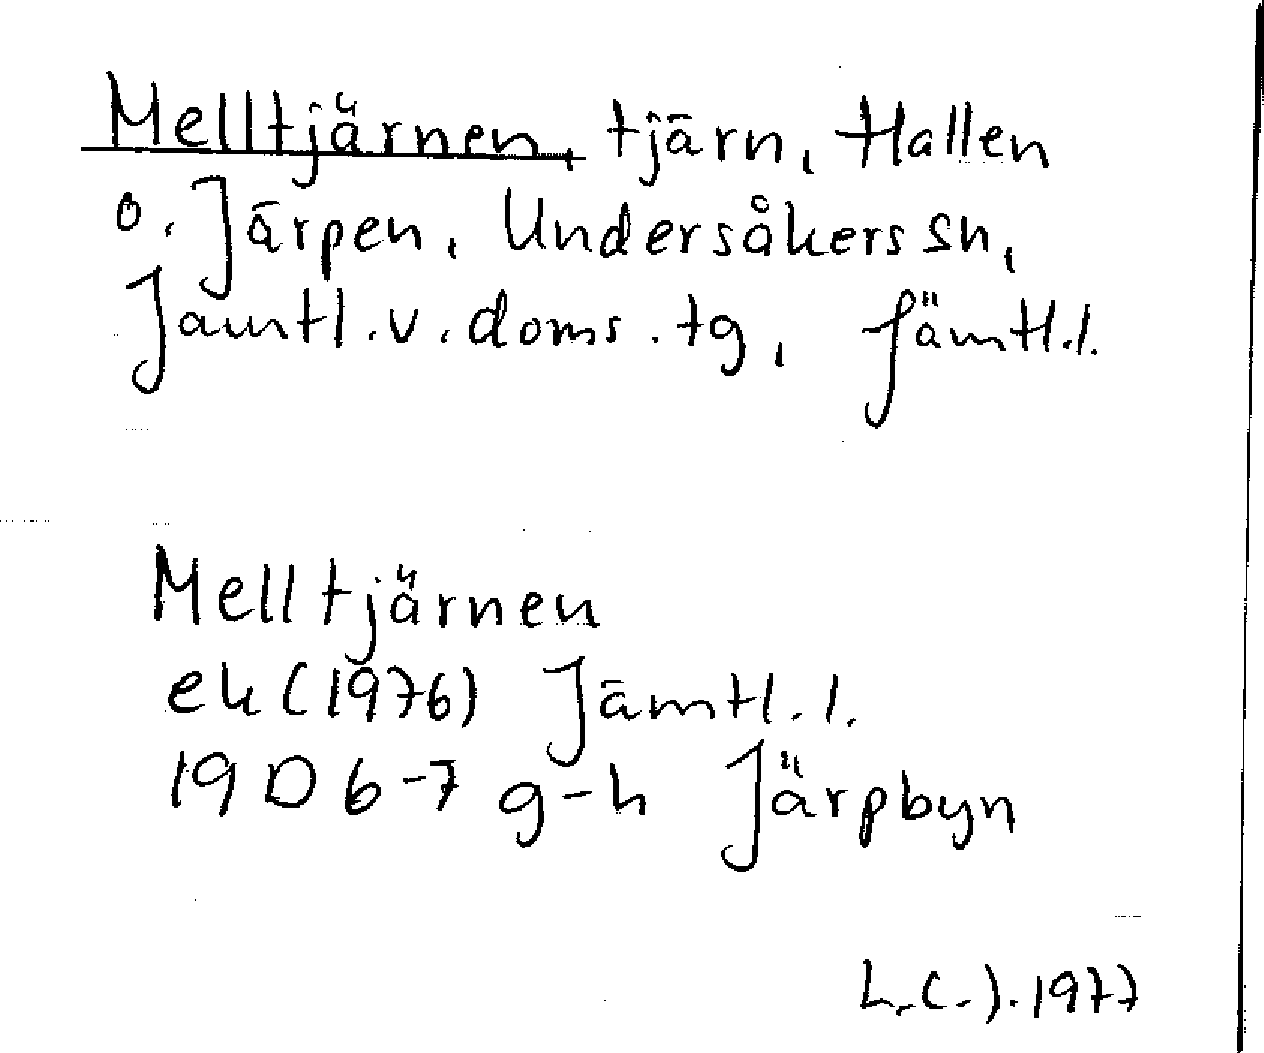 Melltjärnen, tjärn, Hallen
o. Järpen, Undersåkers sn,
Jämtl. v. doms. tg, Jämtl. l.
Melltjärnen
ek (1976) Jämtl. l.
19 D 6-7 g-h Järpbyn
L.(-). 1977